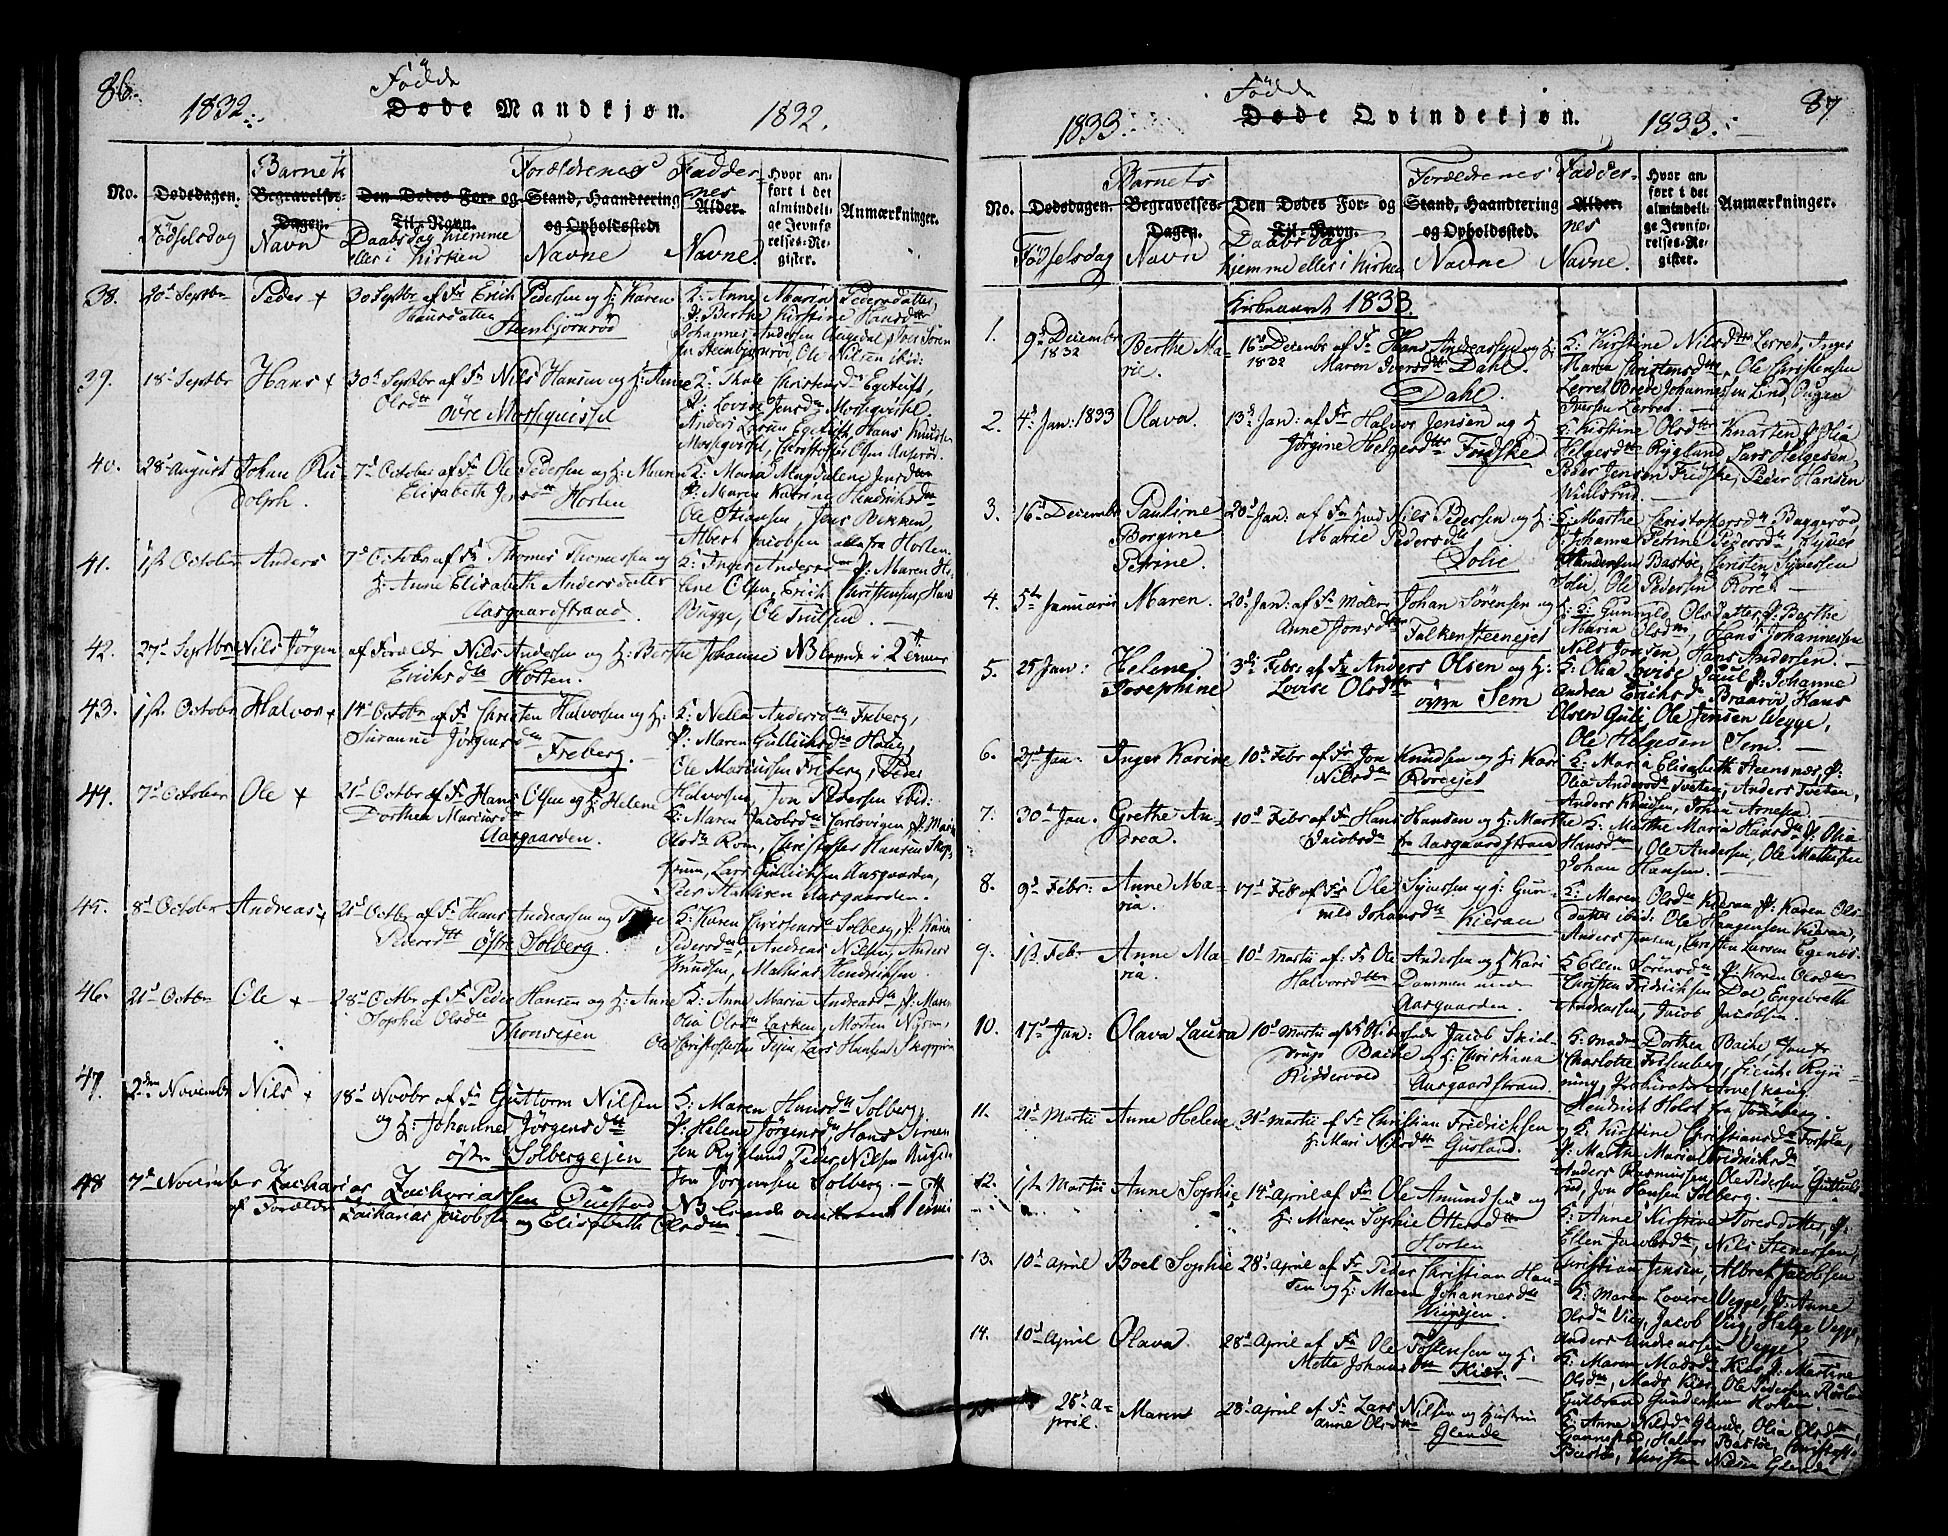 86.
1832.
Födde
Døde Mandkjøn.
1832.
No.
Dødsdagen.
Fødselsdag
Barnets
Begravelses-
Dagen.
Navn
Den Dødes For- og
Til-Navn.
Daabsdag hiemme
eller i Kirken
Forældrenes
Stand, Haandtering
og Opholdssted.
Navne
Fadder-
nes
Alder.
Navne.
Hvor an-
ført i det
almindeli-
ge Jevnfø-
relses-Re-
gister.
Anmærkninger.
38. 20d Septbr Peder + 30 Septbr af Fr Erich Pedersen og H: Karen
Hansdatter
Steenbjörnröd
F: Anne Maria Pedersdatter,
P: Berthe Kirstine Hansdtr
Johannes Andersen Aagedal, Iver Sören
sen Steenbjörnröd, Ole Nilsen ibid:
39. 18d Septbr Hans + 30d Septbr af Fr Nils Hansen og H: Anne
Olsdtr
øvre Moskquissel
F: Thale Christensdtr Egetuft,
P: Lovise Jensdtr Moskqvisle.
Anders Larsen Egetuft, Hans Knudsen
Moskqvissel, Christoffer Olsen
40. 28d August Johan Ru
dolph.
7d October af Fr Ole Pedersen og H: Maren
Elisabeth Jensdtr Horten
F: Maria Magdalene Jensdtr
P: Maren Katrine Hendrichsdtr
Ole Stiansen, Jens Bekken,
Albert Jacobsen alle fra Horten.
41. 1st October Anders 7d October af Fr Thomas Thomassen og
H: Anne Elisabeth Andersdatter
Aasgaardstrand.
F: Inger Andersdtr P: Maren He-
lene Olsen, Erich Christensen, Hans
Bugge, Ole Trulsen.
42. 27d Septbr Nils Jörgen af Forældr Nils Andersen og H: Berthe Johanne
Erichsdtr Horten.
43. 1st October Halvor + 14d October af Fr Christen Halvorsen og H:
Susanne Jörgensdtr
Freberg.
F: Nella Andersdtr Freberg,
P: Maren Gullichsdtr Haug,
Ole Mariussen Freberg, Peder
Halvorsen, Jon Pedersen ibid:
44. 7d October Ole + 21d Octbr af Fr Hans Olsen og H: Helene
Dorthea Mariusdtr
Aasgaarden.
F: Maren Jacobsdtr Carlsvigen P: Maria
Olsdtr Rom, Christoffer Hansen Skop-
Lars Gullichsen Aasgaarden,
Aasgaarden.
45. 8d October Andreas + 21d Octbr af Fr Hans Andreassen og
Pedersdtr Östre Solberg.
F: Karen Christensdtr Solberg, P: Karen
Pedersdtr, Andreas Nilsen, Anders
Knudsen, Mathias Hendrichsen.
46. 21d Octbr Ole + 28d Octbr af Fr Peder Hansen og H: Anne
Sophie Olsdtr
Thonsejen
F: Anne Maria Andreasdtr P: Maren
Olia Olsdtr Morten
Ole Christoffersen Lars Hansen Skoppum
47. 2den Novembr Nils + 18d Novbr af Fr Guttorm Nilsen
og H: Johanne Jörgensdtr
östre Solbergejen
F: Maren Hansdtr Solberg,
P: Helene Jörgensdtr, Hans Iver-
sen Rygland, Peder Nilsen
Jon Jörgensen Solberg.
48 7d November Zacharias Zachariassen
af Forældr Zacharias Jacobsen og Elisabeth Olsdtr

87
1833.
Födde
Døde Qvindekjøn.
1833.
No.
Dødsdagen.
Fødselsdag
Barnets
Begravelses-
Dagen.
Navn
Den Dødes For- og
Til-Navn.
Daabsdag
hjemme eller i Kirken
Forældrenes
Stand, Haandtering
og Opholdssted.
Navne
Fadder-
Alder.
nes
Navne.
Hvor an-
ført i det
almindeli-
ge Jevnfø-
relses-Re-
gister.
Anmærkninger.
Kirkeaaret 1833.
1. 9d Decembr
1832
Berthe Ma-
rie.
16d Decembr af Fr Hans Andreassen og H:
1832 Maren Iversdtr Dahl.
Dahl.
F: Kirstine Nilsdtr Lerret, Inger
Maria Christensdtr, Ole Christensen
Lerret, Johannessen Lind,
Iversen Lerret.
2. 4d Jan: 1833 Olava. 13d Jan: af Fr Halvor Jensen og H:
Jörgine Helgesdtr Fridske
F: Kirstine Olsdtr Knatten, P: Olia
Helgesdtr Rygland, Lars Helgesen,
Peder Jensen Fridske, Peder Hansen
3. 16d Decembr Pauline
Borgine
Petrine.
20d Jan: af Fr Nils Pedersen og H:
Marie Pedersdtr
Solie
F: Marthe Christoffersdtr Baggeröd,
Johanne Petrine Pedersdtr, Peder
Bastöe, Christen Syversen
Solie, Ole Pedersen Röre.
4. 5te Januarii Maren. 20d Jan: af Fr Möller Johan Sörensen og
Anne Jonsdtr Falkensteenejed
F: Gunnild Olsdatter, P: Berthe
Maria Olsdtr, Hans Johannesen
Nils Jonsen, Hans Andersen.
5. 25 Jan: Helene
Josephine
3d Febr af Fr Anders Olsen og H:
Lovise Olsdtr öyvre Sem
F: Olia Lovise Paul P: Johanne
Andrea Erichsdtr Braaröd, Hans
Olsen Guli, Ole Jensen Vegge,
Ole Helgesen Sem.
6. 27d Jan: Inger Karine 10d Febr af Fr Jon Knudsen og H: Kari
Nilsdtr Röreejet
F: Maria Elisabeth Steensnæs, P:
Olia Andersdtr Tveten, Anders Tveten,
Anders Knudsen, Johan Arnesen.
7. 30d Jan. Grethe An-
drea
10d Febr af Fr Hans Hansen og H: Marthe
Jacobsdtr fra Aasgaardstrand
F: Marthe Maria Hansdtr P: Olia
Hansdtr, Ole Andersen, Ole Mathisen
Johan Hansen.
8. 9d Febr: Anne Ma-
ria.
17d Feb af Fr Ole Syversen og H: Gun-
nild Johansdtr Kieraa
F: Maren Olsdtr Kieraa P: Karen Ols-
datter ibid. Ole Haagensen Kieraa,
Anders Jensen, Christen Larsen
9. 1st Febr Anne Ma-
ria.
10d Martii af Fr Ole Andersen og H: Kari
Halvorsdtr Dammen under
Aasgaarden.
F: Ellen Sörensdtr, P: Karen Olsdtr
Christen Fridrichsen Dal, Engebreth
Andreassen, Jacob Jacobsen.
10. 17d Jan: Olava Laura 10d Martii af Fr Jacob Skiel-
Bache og H: Christiana
Riddervold Aasgaardstrand.
F: Madm Dorthea Bache Jomfr
Charlotte
Procurator Arveskaug
Hendrich Holst fra Tönsberg.
11. 21d Martii Anne Helene 31d Martii af Fr Christian Fridrichsen
H: Mari Nilsdtr Gusland.
F: Kirstine Christiansdtr
P: Marthe Maria Fridrichsdtr
Anders Rasmussen, Ole Pedersen
Jon Hansen Solberg.
12. 1st Martii Anne Sophie 14d April af Fr Ole Amundsen og
H: Maren Sophie Ottersdtr
Horten
F: Anne Kirstine Toresdatter, P:
Ellen Jacobsdtr, Nils Stenersen,
Christian Jensen, Albret Jacobsen
13. 10d April Boel Sophie 28d April af Fr Peder Christian Han-
sen og H: Maren Johannesdtr
Viigejen
F: Maren Lovise Vegge, P: Anne
Olsdtr Viig, Jacob Viig, Helge Vegge,
Anders Andreassen Vegge
14. 10d April Olava 28d April af Fr Ole Tostensen og H:
Mette Johansdtr Kiær.
F: Maren Madsdtr Kiær, P: Martine
Olsdtr, Mads Kiær, Ole Pedersen
Gulbrand Gundersen Horten.
25d A-
pril.
Maren 28d April af Fr Lars Nilsen og Hustru
Anne Olsdtr Glende
F: Anne Nilsdtr Glende, Olia Olsdtr
Halvor Bastöe,
Bastöe, Christen Nilsen Glende